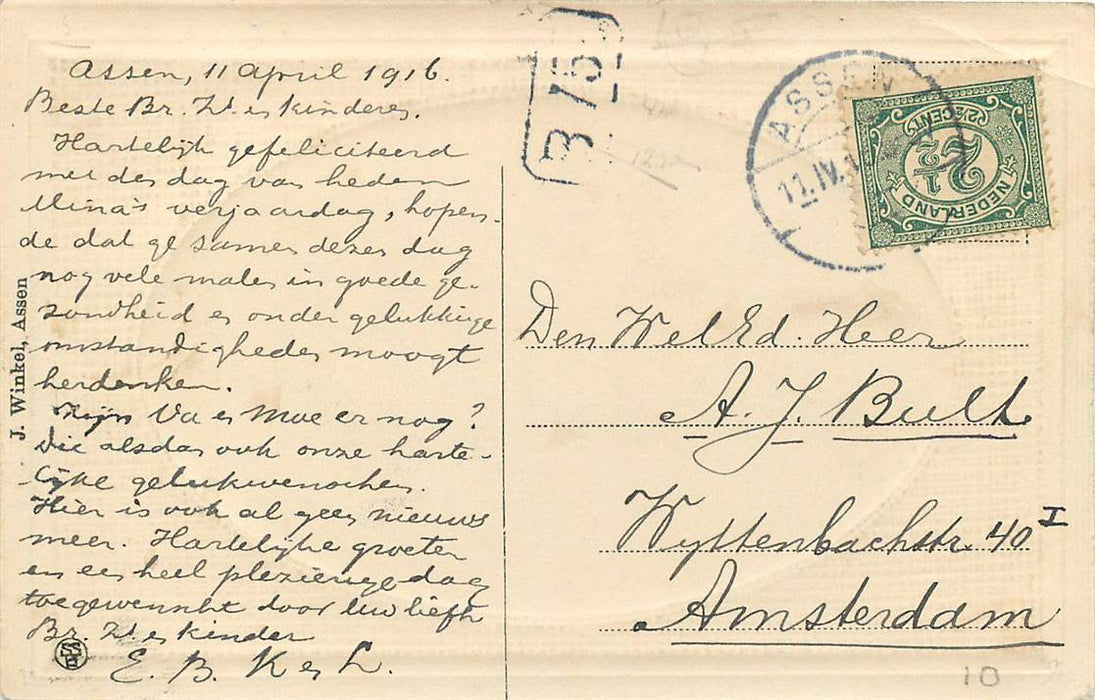 Assen, 11 April 1916.
Beste Br. Zr. en kinderen.
Hartelijk gefeliciteerd
met den dag van heden
Mina's verjaardag, hopen-
de dat ge samen dezen dag
nog vele malen in goede ge-
zondheid en onder gelukkige
omstandigheden moogt
herdenken.
Zijn Va en Moe er nog?
Die alsdan ook onze harte-
lijke gelukwenschen.
Hier is ook al geen nieuws
meer. Hartelijke groeten
en een heel plezierige dag
toegewenscht door Uw liefh
Br. Zr. en kinder
E. B. K en L.
J. Winkel, Assen
B 15
ASSEN
11.IV.1
NEDERLAND
2½
2½ CENT
Den WelEd. Heer
A. J. Bult
Wyttenbachstr. 40 I
Amsterdam
10